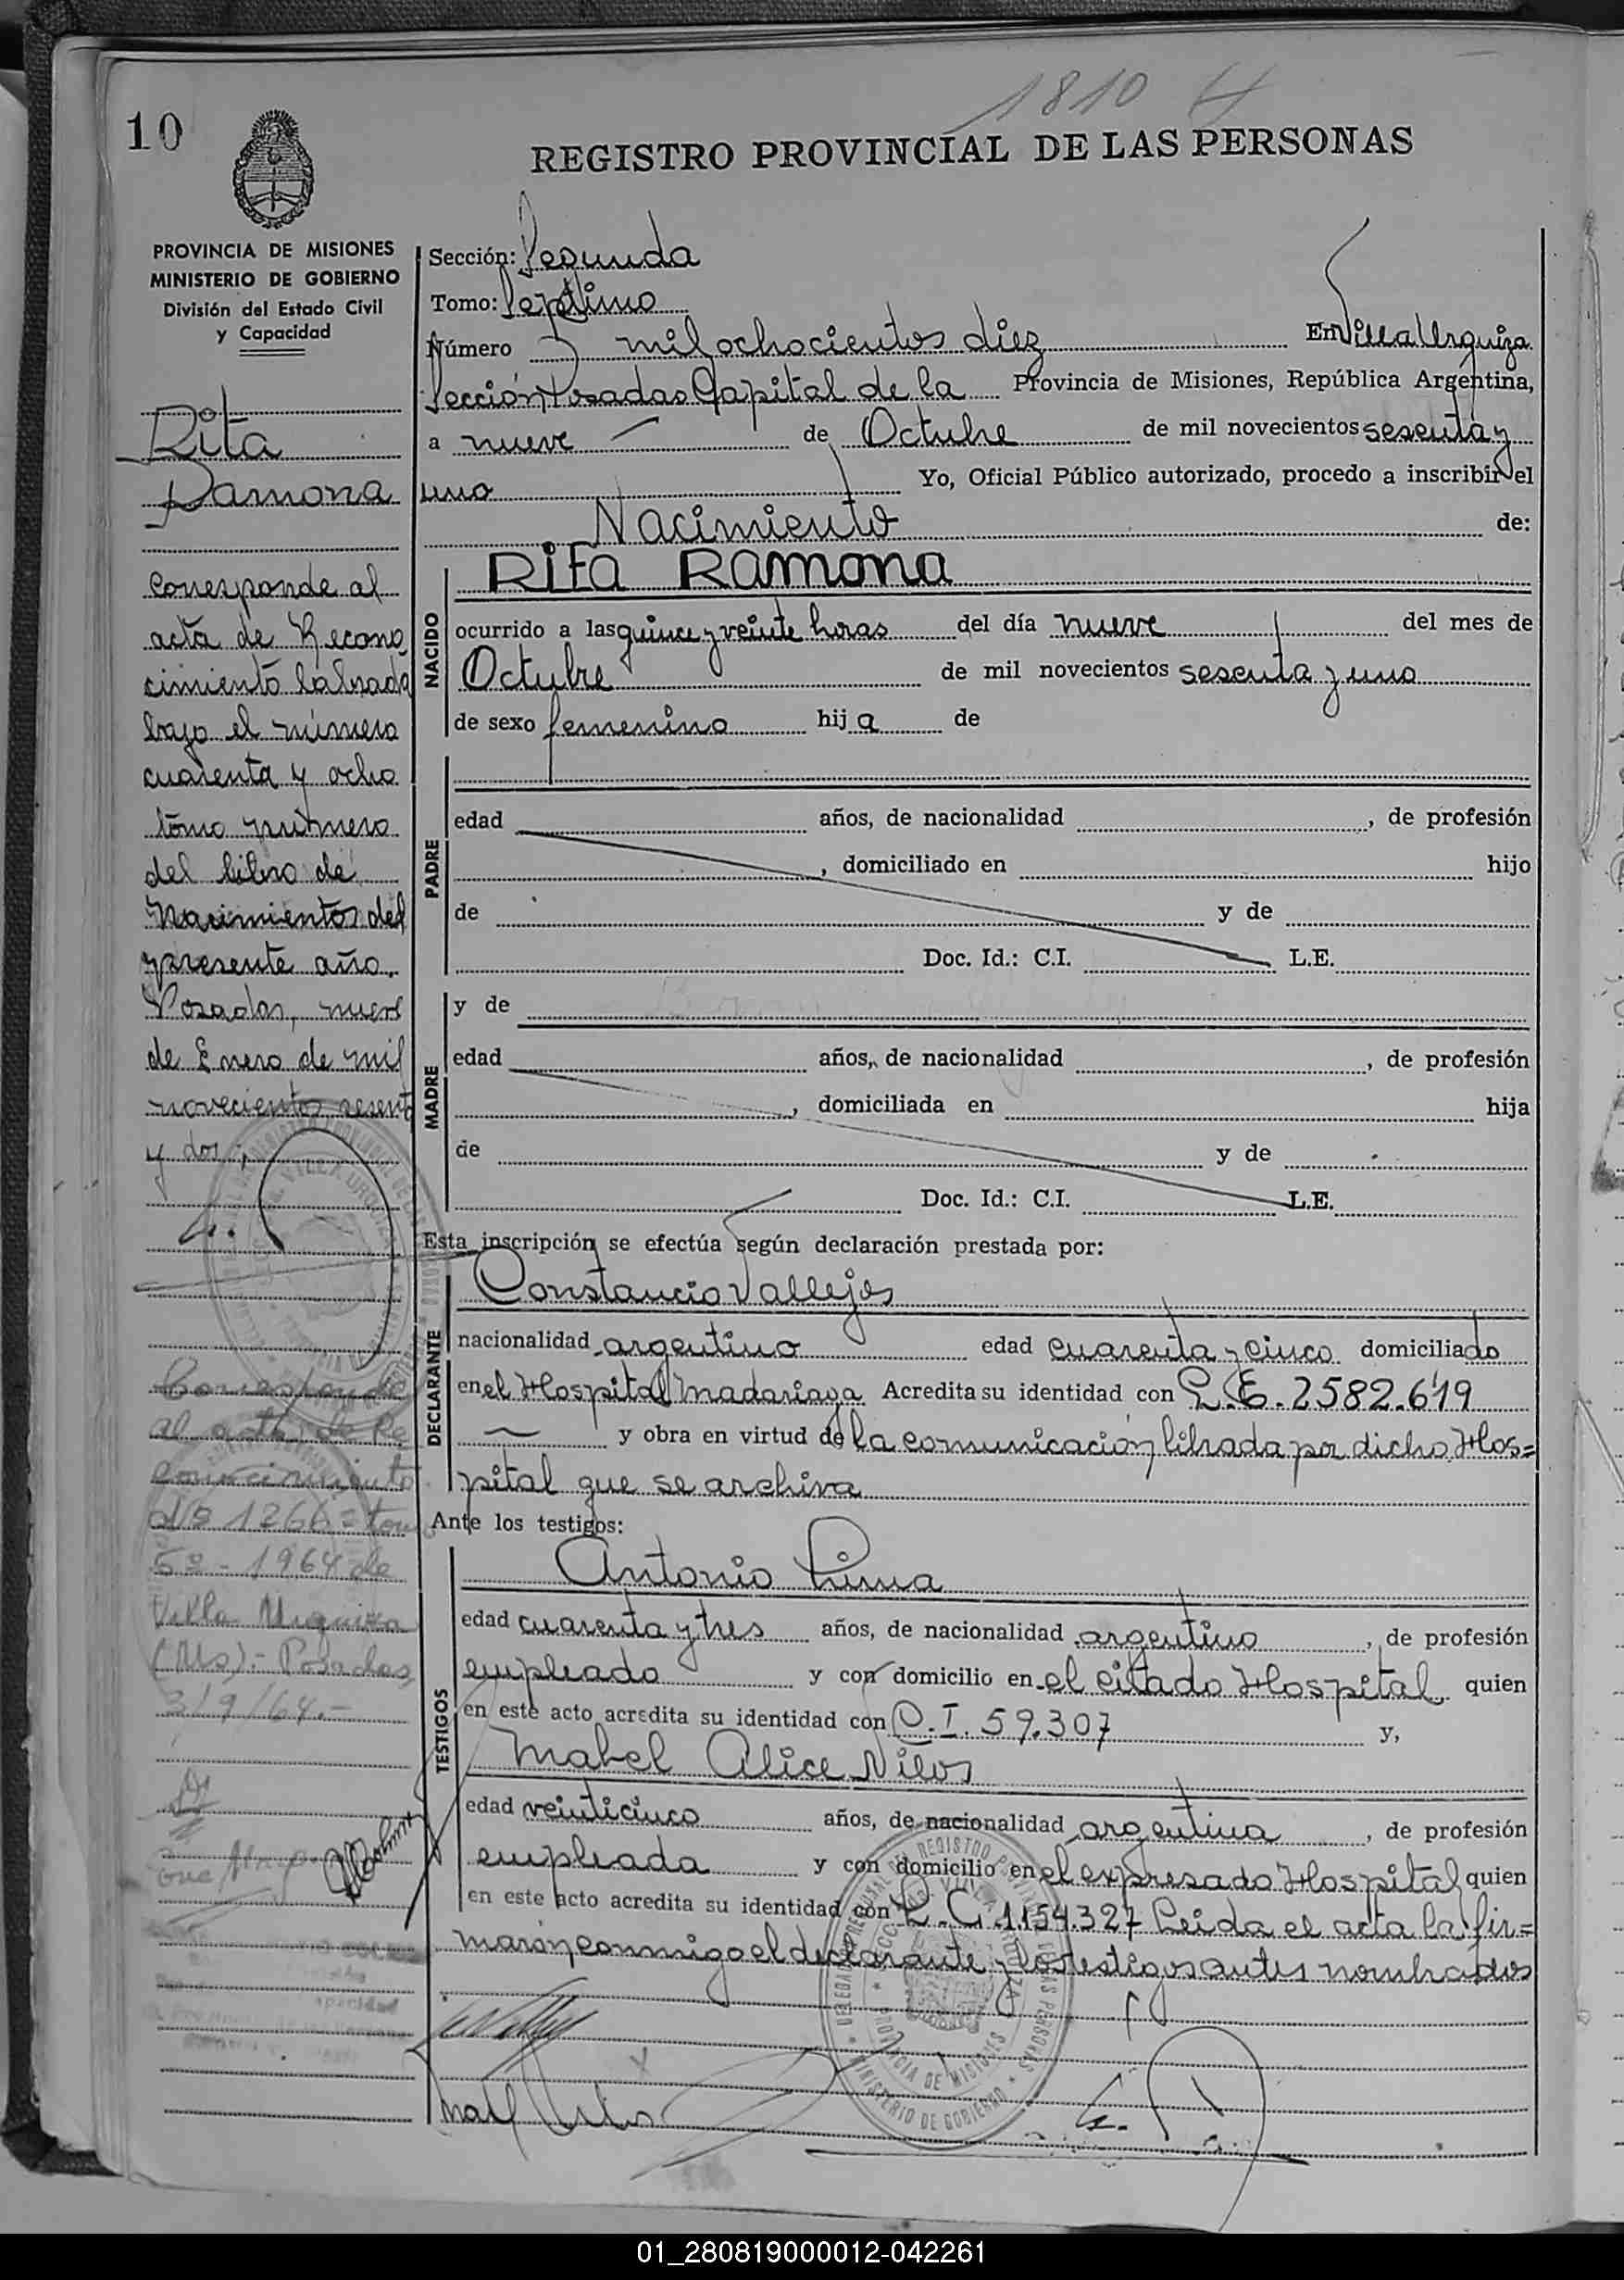 1810
10
REGISTRO PROVINCIAL DE LAS PERSONAS
PROVINCIA DE MISIONES
MINISTERIO DE GOBIERNO
División del Estado Civil
y Capacidad
Rita
Ramona
Corresponde al
acta de Recono
cimiento labrada
bajo el número
cuarenta y ocho
tomo primero
del libro de
Nacimientos del
presente año.
Posadas, nueve
de Enero de mil
novecientos sesenta
y dos.
Corresponde
al acta de Re
conocimiento
Nº 1266 = tomo
5º - 1964 de
Villa Urquiza
(Ms).- Posadas,
3/9/64.-
Sección: Segunda
Tomo: Septimo
Número mil ochocientos diez En Villa Urquiza
Sección Posadas Capital de la Provincia de Misiones, República Argentina,
a nueve de Octubre de mil novecientos sesenta y
uno Yo, Oficial Público autorizado, procedo a inscribir el
Nacimiento de:
NACIDO
Rita Ramona
ocurrido a las quince y veinte horas del día nueve del mes de
Octubre de mil novecientos sesenta y uno
de sexo femenino hija de
PADRE
edad años, de nacionalidad , de profesión
, domiciliado en hijo
de y de
Doc. Id.: C.I. L.E.
MADRE
y de
edad años, de nacionalidad , de profesión
, domiciliada en hija
de y de
Doc. Id.: C.I. L.E.
Esta inscripción se efectúa según declaración prestada por:
DECLARANTE
Constancio Vallejos
nacionalidad argentino edad cuarenta y cinco domiciliado
en el Hospital Madariaga Acredita su identidad con L.E. 2582.619
y obra en virtud de la comunicación librada por dicho Hos=
pital que se archiva
Ante los testigos:
TESTIGOS
Antonio Lima
edad cuarenta y tres años, de nacionalidad argentino, de profesión
empleado y con domicilio en el citado Hospital quien
en este acto acredita su identidad con C.I. 59.307 y,
Mabel Alice Nilos
edad veinticinco años, de nacionalidad argentina, de profesión
empleada y con domicilio en el expresado Hospital quien
en este acto acredita su identidad con L.C. 1.154.327 Leida el acta la fir=
maron conmigo el declarante y los testigos antes nombrados
01_280819000012-042261